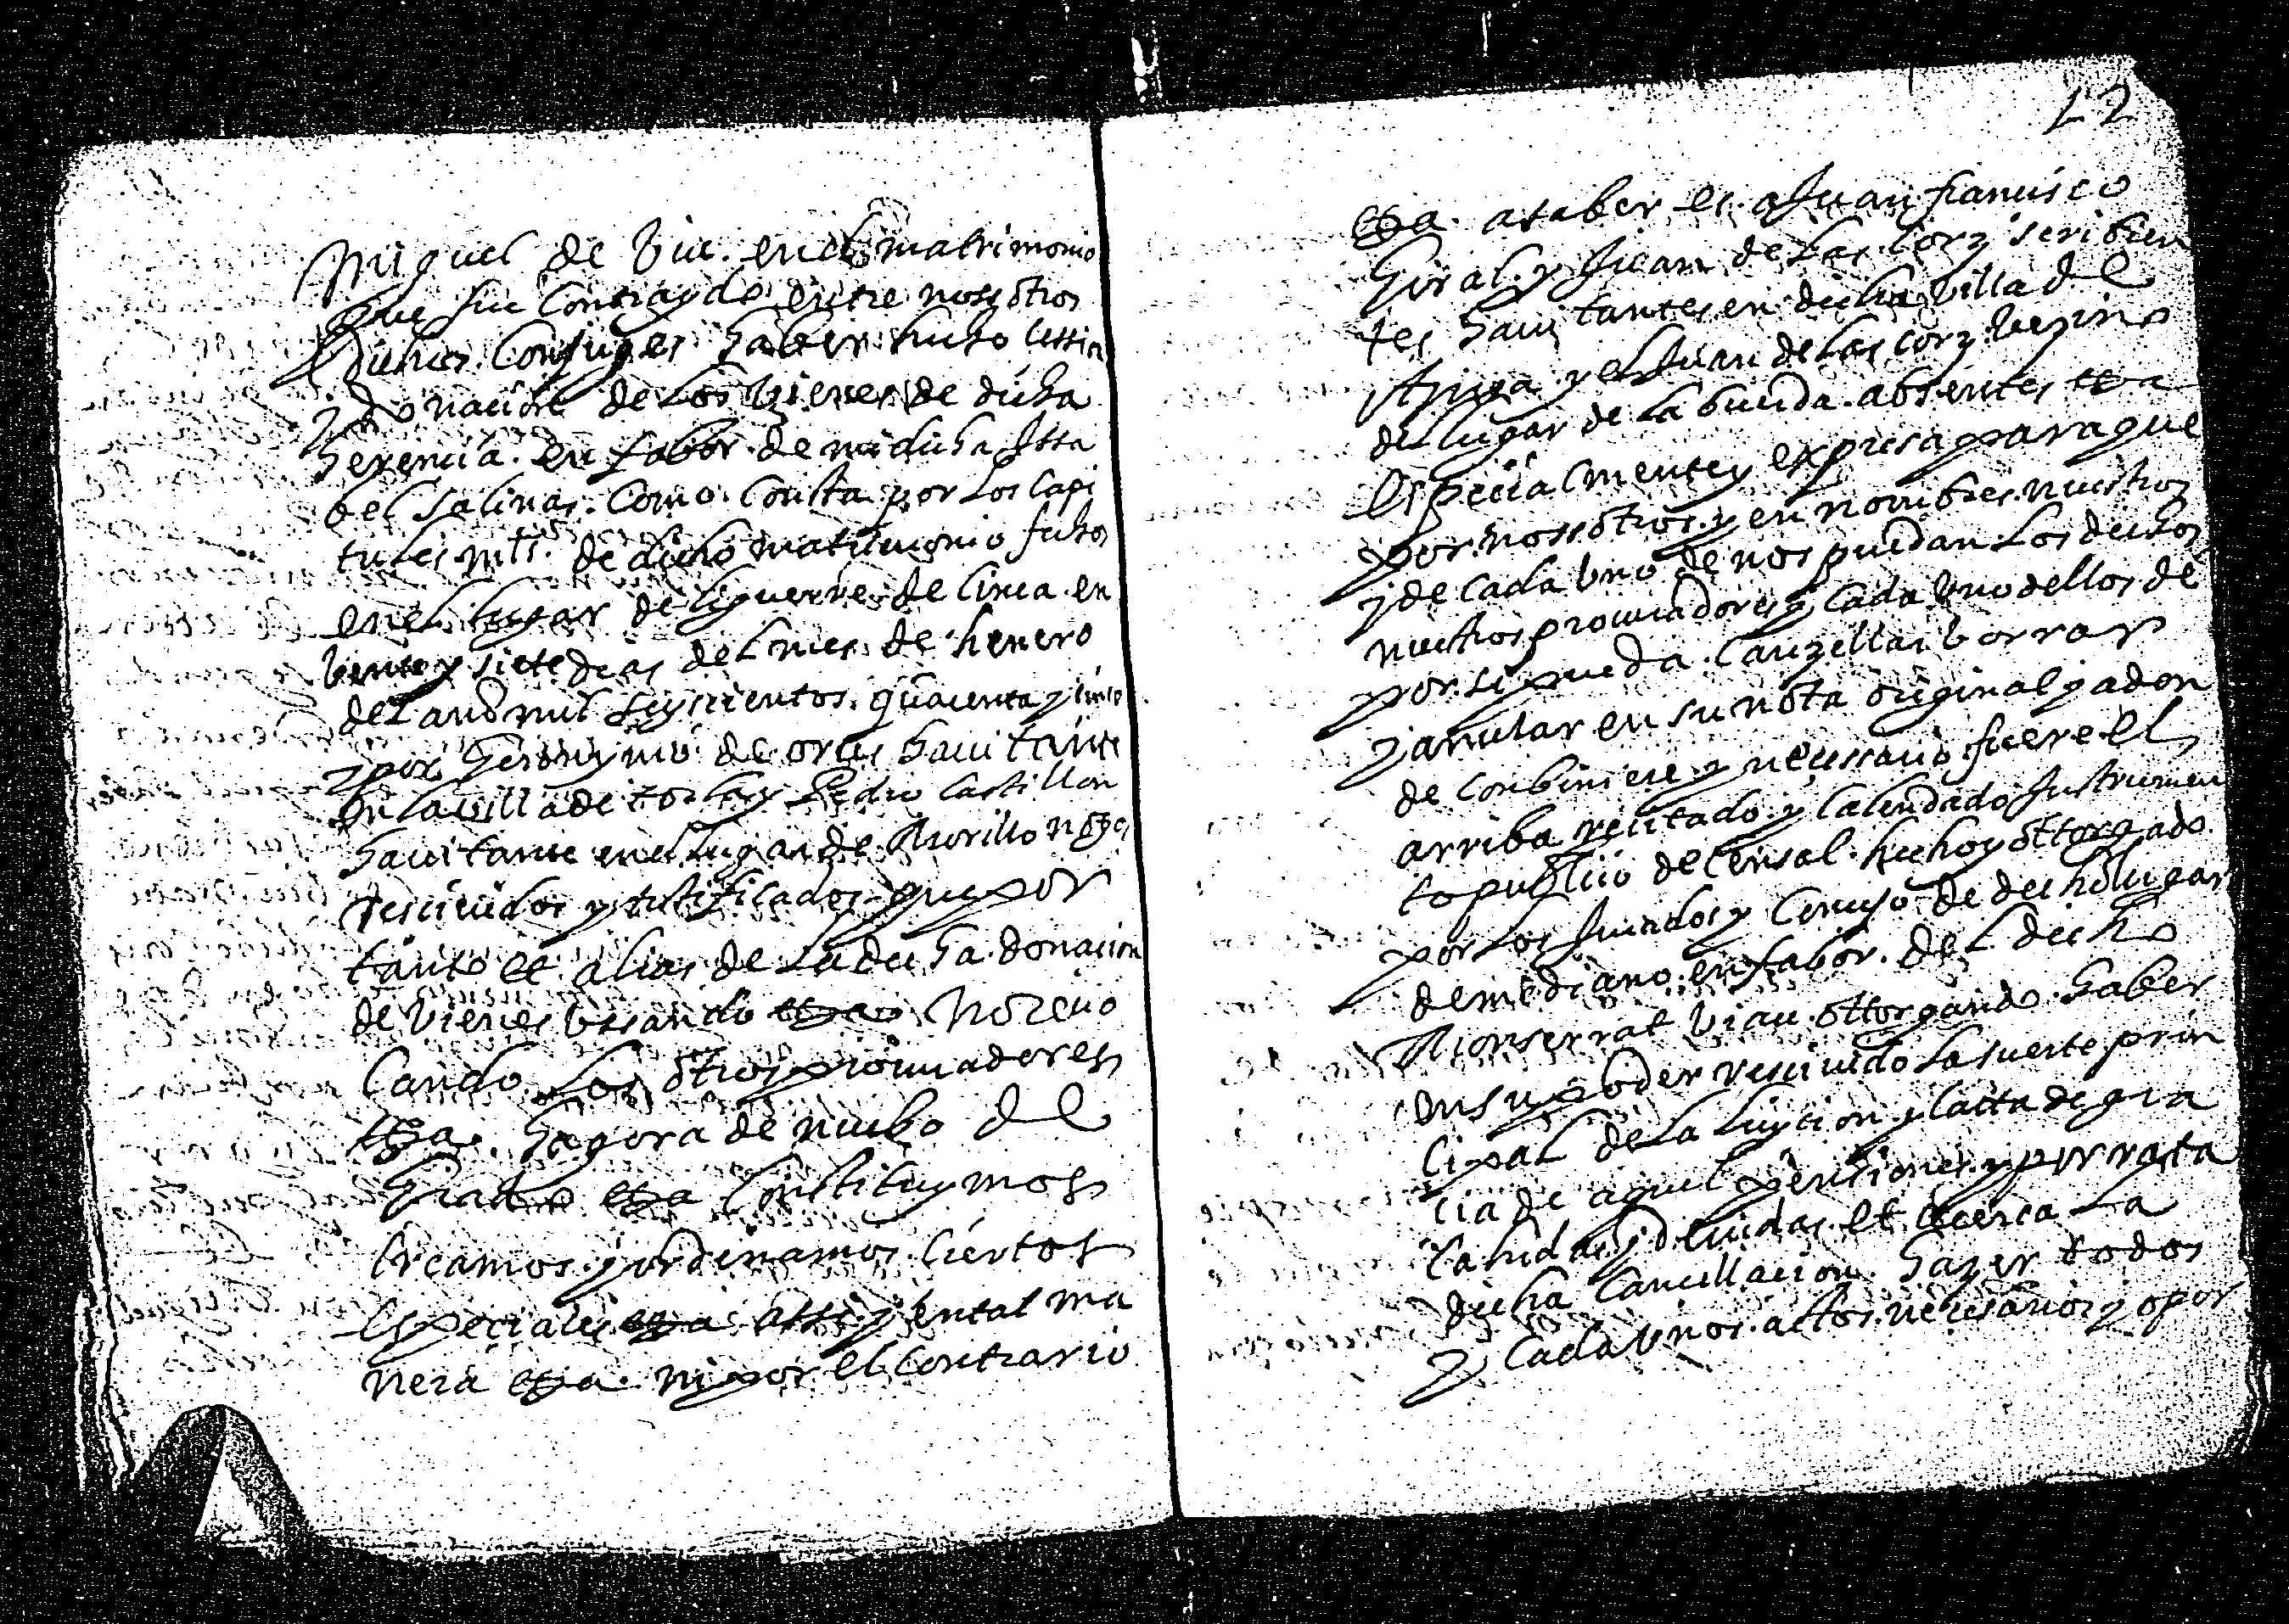 Miguel de Viu. en el matrimonio
que fue contraydo entre nosotros
dichos Conjuges haber hecho cession
y donacion de los bienes de dicha
herencia. en fabor de mi dicha Issa
bel Salinas. Como. Consta por los Capi
tules mts. de dicho matrimonio fechos
en el lugar de liguerre de Cinca. en
bente y siete dias del mes de henero
del año mil seyscientos. quarenta y cinco
y por Geronymo de oros havitante
en la villa de torla y Pedro Castillon
havitante en el lugar de Morillo
rescividos y testificados. que por
tanto et alias de la dicha donacion
de bienes ussando etza no revo
cando los otros procuradores
etza. hagora de nuebo de
Grado etza Constituymos
Creamos y ordenamos Ciertos
especiales etza assi y en tal ma
nera etza. ni por el contrario
12
etza. a saber es. a Juan francisco
Giral y Juan de Las Corz scribien
tes havitantes en dicha villa de
Aynsa y el Juan de Las Corz. vezino
del lugar de La buerda. absentes etza
especialmente y expresa para que
por nosotros. y en nombres nuestros
y de cada uno de nos puedan. Los dichos
nuestros procuradores y Cada uno dellos de
por si pueda. Canzellar borrar
y anular en su nota original y adon
de conbiniere y necessario fuere el
arriba recitado y Calendado Instrumen
to publico de Censal. hecho y ottorgado
por los Jurados y Concejo de dicho lugar
de mediano. en fabor. del dicho
Monserrat Viau. ottorgando. haber
en su poder rescivido La suerte prin
cipal de La luycion y Carta de gra
cia de aquel pensiones y porrata
Cahidas y devidas. et acerca La
dicha Cancellacion. hazer todos
y Cada unos. actos. necesarios y opor